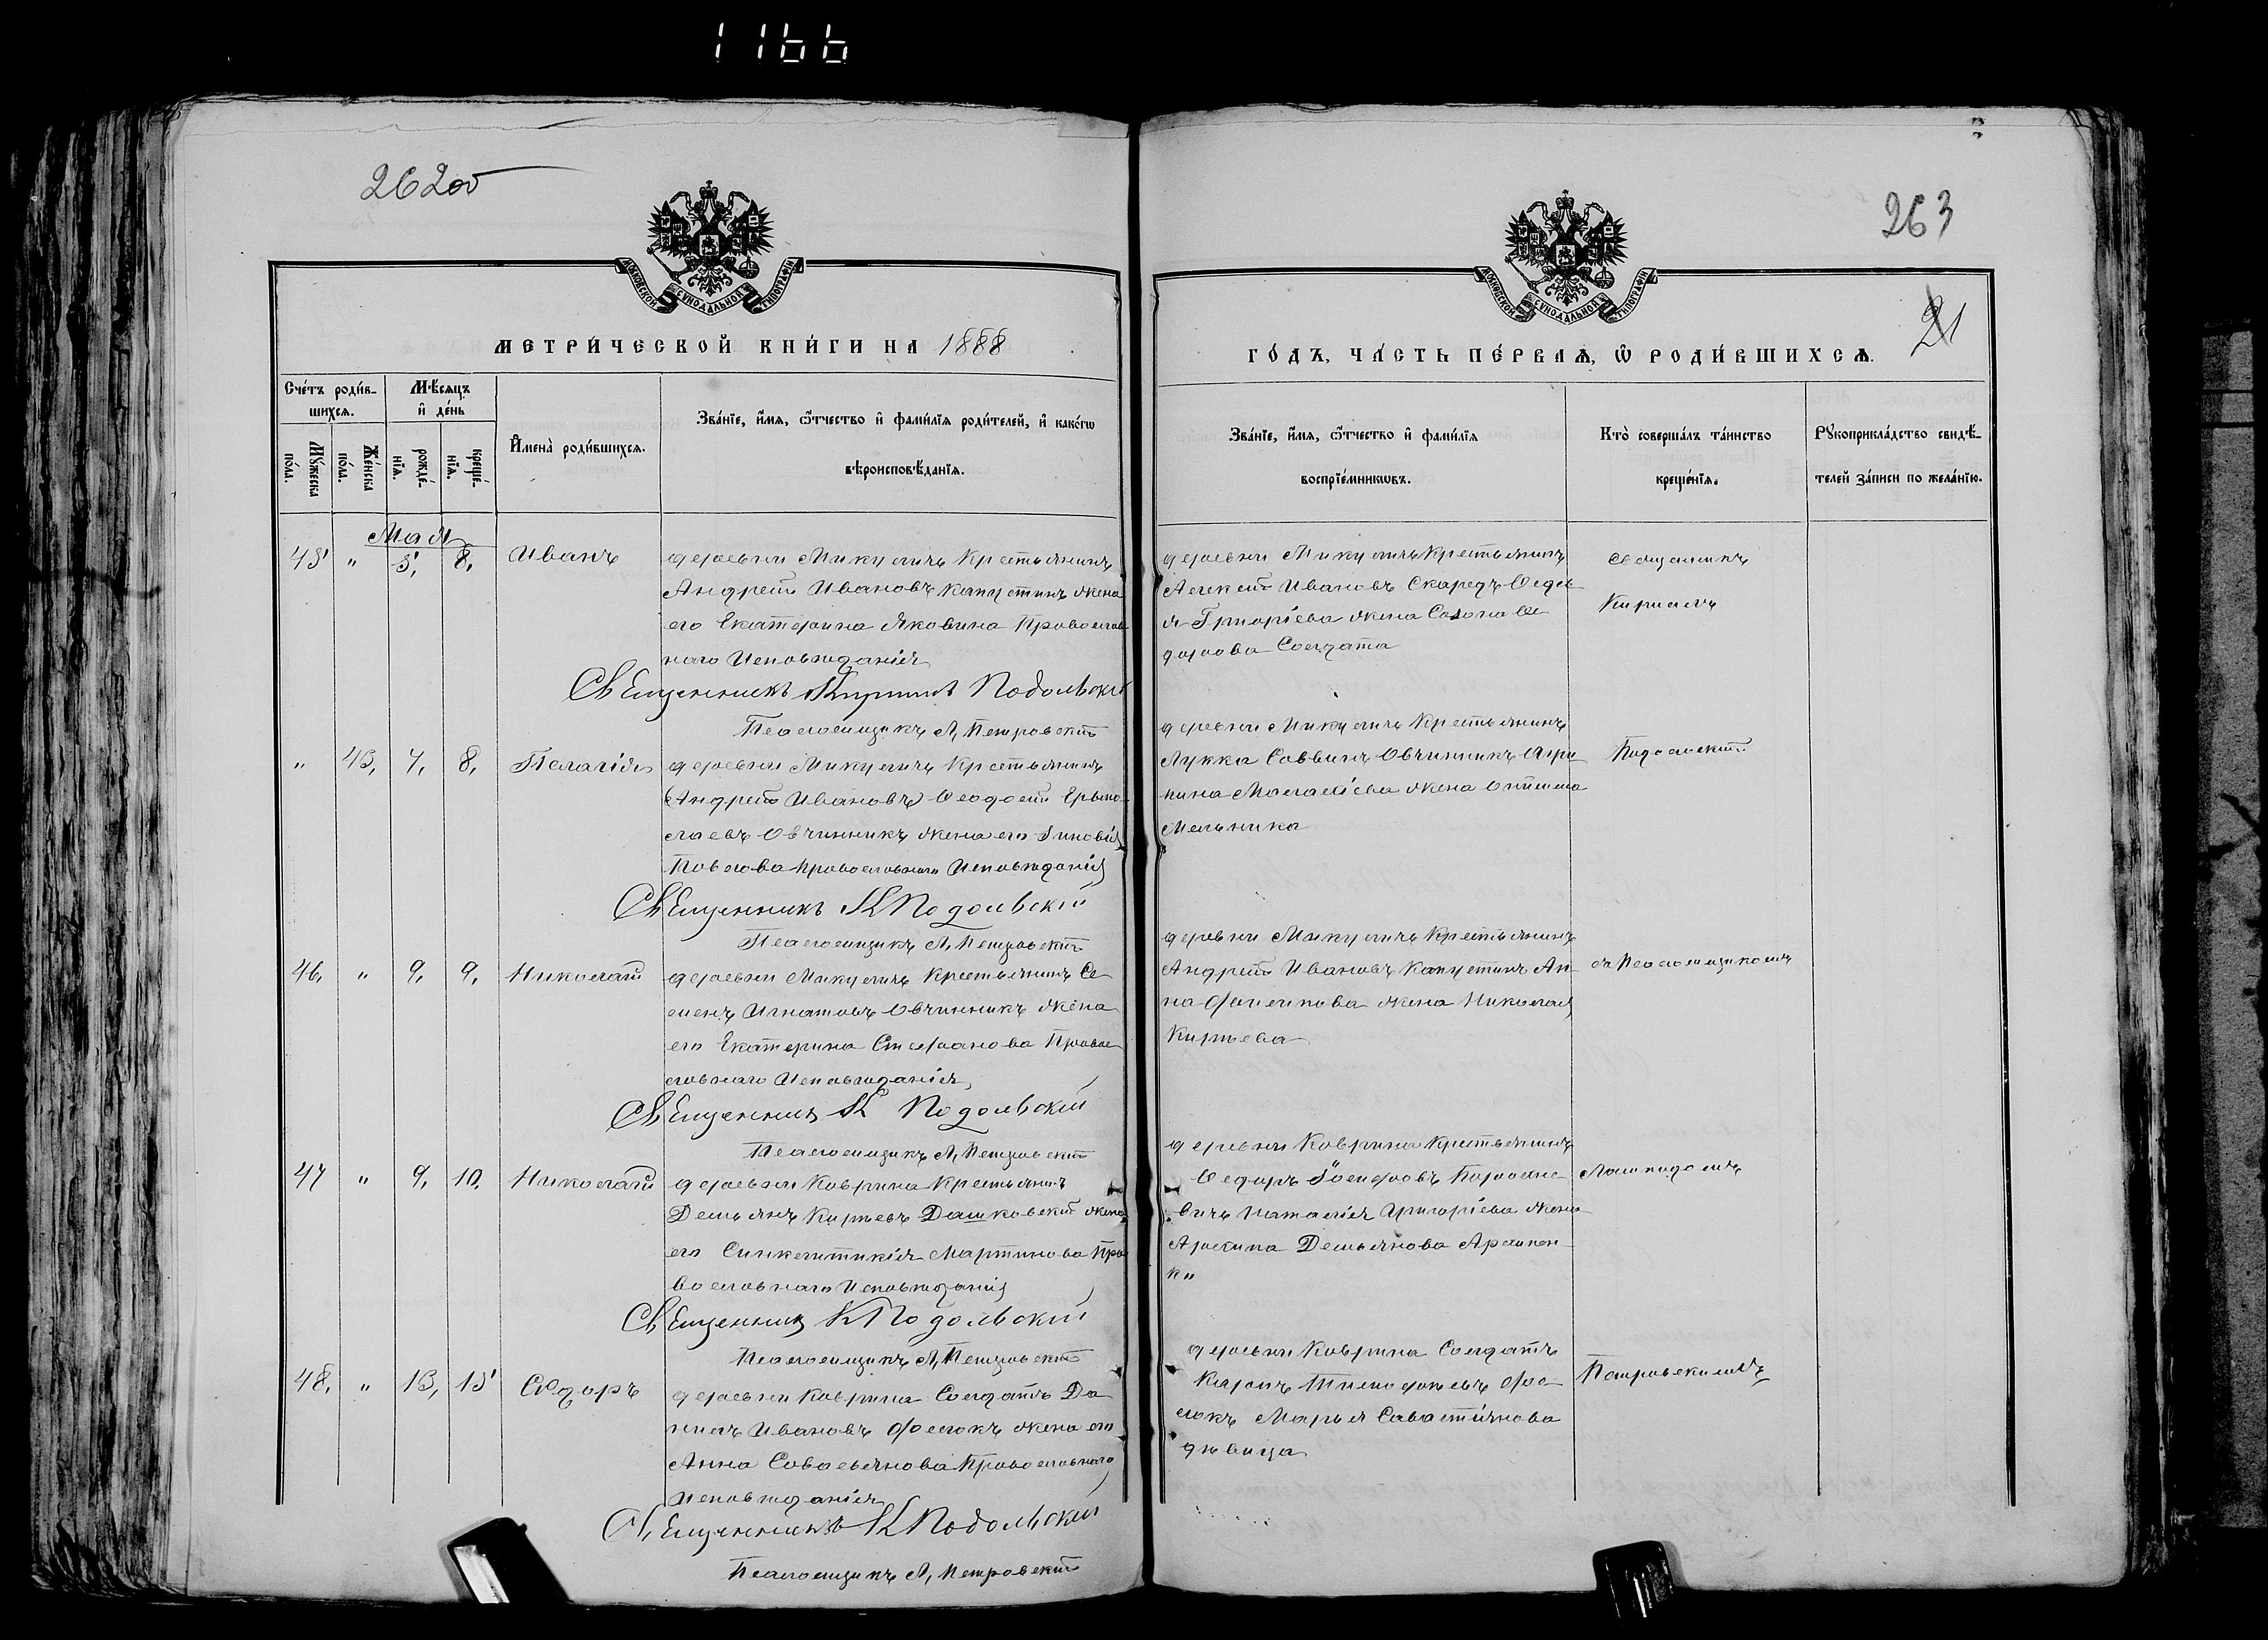 1166
262об
263
МОСКОВСКОЙ СѴНОДАЛЬНОЙ ТИПОГРАФІИ
МОСКОВСКОЙ СѴНОДАЛЬНОЙ ТИПОГРАФІИ
21
МЕТРИ́ЧЕСКОЙ КНИ́ГИ НА 1888
ГО́ДЪ, ЧА́СТЬ ПЕ́РВАѦ, Ѽ РОДИ́ВШИХСѦ.
Сче́тъ роди́в-
шихсѧ.
Мꙋжеска по́ла.
Же́нска по́ла.
Мѣ́сѧцъ
и҆ де́нь
рожде́-
нїѧ.
креще́-
нїѧ.
И҆мена̀ роди́вшихсѧ.
Зва́нїе, и҆́мѧ, ѻ҆́тчество и҆ фамѝлїѧ роди́телей, и҆ како́гѡ
вѣроисповѣ́данїѧ.
Зва́нїе, и҆́мѧ, ѻ҆́тчество и҆ фами́лїѧ
воспрїе́мникѡвъ.
Кто̀ соверша́лъ та́инство
креще́нїѧ.
Рꙋкоприкла́дство свидѣ́-
телей за́писи по жела́нїю.
Мая
45 " 5, 8, Иванъ
деревни Микуличъ Крестьянинъ
Андрей Ивановъ Капустинъ жена
его Екатерина Яковина Православ
наго Исповѣданія
Священникъ Кириллъ Подольскій
Псаломщикъ Л, Петровскій
деревни Микуличъ Крестьянинъ
Алексѣй Ивановъ Скаредъ
я Григоріева жена
дорова Солдата
Священникъ
Кириллъ
" 43, 7, 8, Пелагія
деревни Микуличъ Крестьянинъ
Андрей Ивановъ Ѳеодосій Ермо
лаевъ Овчинникъ жена его Зиновія
Павлова Православнаго Исповѣданія
Священникъ К Подольскій
Псаломщикъ Л, Петровскій
деревни Микуличъ Крестьянинъ
Лукка Саввинъ Овчинникъ Агри
пина жена
Мельника
Подольскій
46, " 9, 9, Николай
деревни Микуличъ Крестьянинъ Се
менъ Игнатовъ Овчинникъ жена
его Екатерина Стефанова Правос
лавнаго Исповѣданія
Священникъ К Подольскій
Псаломщикъ Л, Петровскій
деревни Микуличъ Крестьянинъ
Андрей Ивановъ Капустинъ Ан
на Филипова жена Николая
Кирѣева
съ Псаломщикомъ
47 " 9, 10, Николай
деревни Коврина Крестьянинъ
Демьянъ Кирѣевъ Дашковскій жена
его Синклитикія Мартинова Пра
вославнаго Исповѣданія
Священникъ К Подольскій
Псаломщикъ Л, Петровскій
деревни Коврина Крестьянинъ
Ѳедоръ Іосифовъ
вичъ Наталія Григоріева жена
Архипа Демьянова
ки
48, " 13, 15 Сидоръ
деревни Коврина Солдатъ Да
нилъ Ивановъ жена его
Анна Православнаго
Исповѣданія
Священникъ К Подольскій
Псаломщикъ Л, Петровскій
деревни Коврина Солдатъ
Карпъ Тимоѳѣевъ
Марья Савастіянова
дѣвица
Петровскимъ